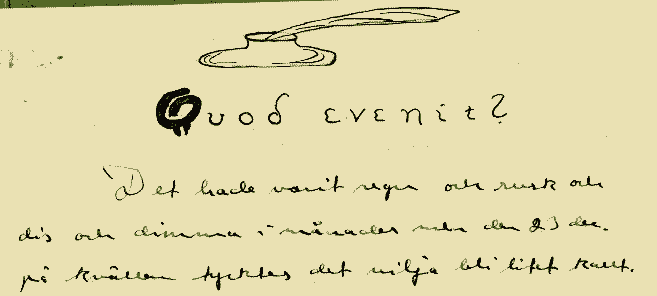 Quod evenit?
Det hade varit regn och rusk och
dis och dimma i månader men den 23 dec.
på kvällen tycktes det vilja bli litet kallt.